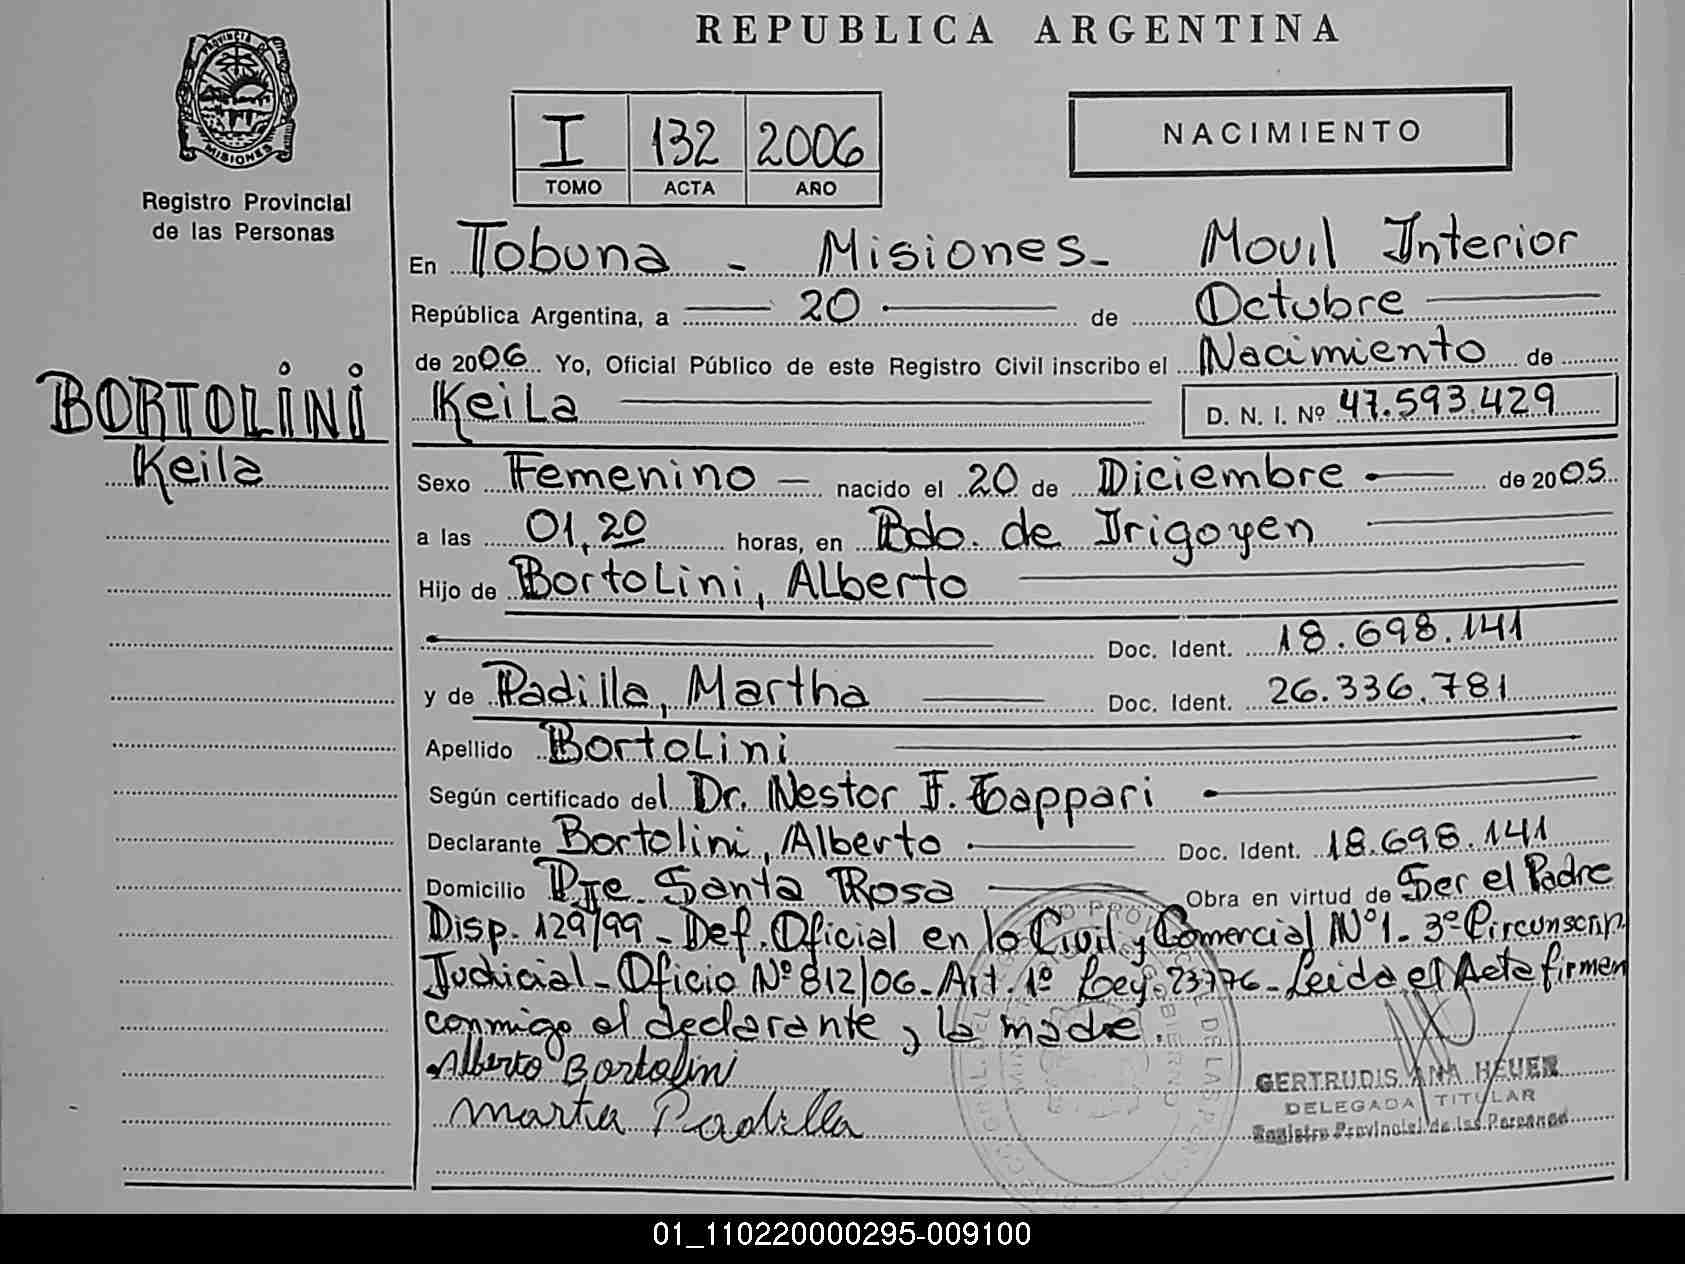 REPUBLICA ARGENTINA
PROVINCIA DE
MISIONES
Registro Provincial
de las Personas
I 132 2006
TOMO ACTA AÑO
NACIMIENTO
En Tobuna - Misiones - Movil Interior
República Argentina, a 20 de Octubre
de 2006 Yo, Oficial Público de este Registro Civil inscribo el Nacimiento de
Keila D. N. I. Nº 47.593.429
BORTOLINI
Keila
Sexo Femenino - nacido el 20 de Diciembre de 2005
a las 01,20 horas, en Bdo. de Irigoyen
Hijo de Bortolini, Alberto
Doc. Ident. 18.698.141
y de Padilla, Martha Doc. Ident. 26.336.781
Apellido Bortolini
Según certificado del Dr. Nestor F. Tappari
Declarante Bortolini, Alberto Doc. Ident. 18.698.141
Domicilio Pje. Santa Rosa Obra en virtud de Ser el Padre
Disp. 129/99 - Def. Oficial en lo Civil y Comercial Nº 1 - 3º Circunscrip.
Judicial - Oficio Nº 812/06 - Art. 1º Ley 23776 - Leida el Acta firman
conmigo el declarante y la madre.
Alberto Bortolini
Marta Padilla
GERTRUDIS ANA HEUER
DELEGADA TITULAR
Registro Provincial de las Personas
01_110220000295-009100